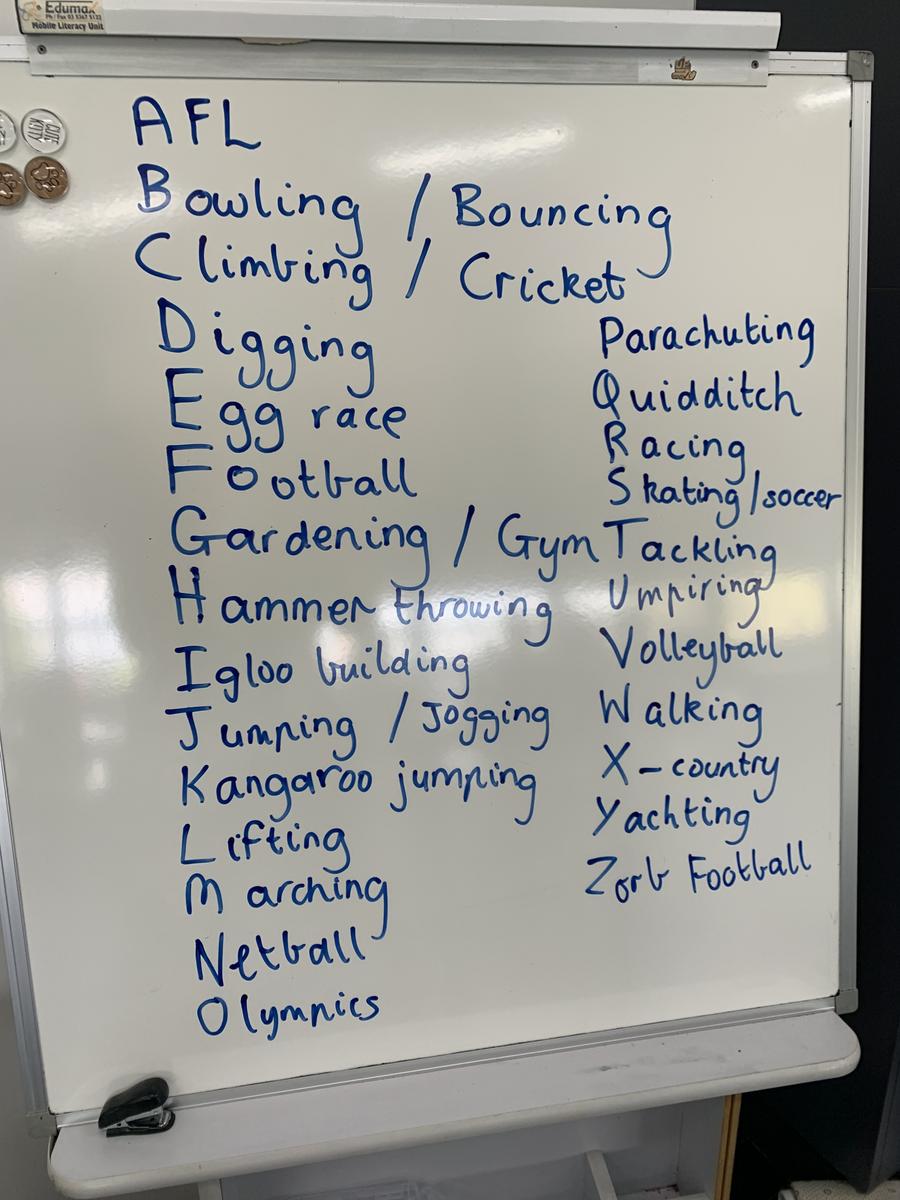 Edumax
Ph / Fax 03 5367 5122
Mobile Literacy Unit
CUTE
KITTY
AFL
Bowling / Bouncing
Climbing / Cricket
Digging
Egg race
Football
Gardening / Gym
Hammer throwing
Igloo building
Jumping / Jogging
Kangaroo jumping
Lifting
Marching
Netball
Olympics
Parachuting
Quidditch
Racing
Skating/soccer
Tackling
Umpiring
Volleyball
Walking
X-country
Yachting
Zorb Football